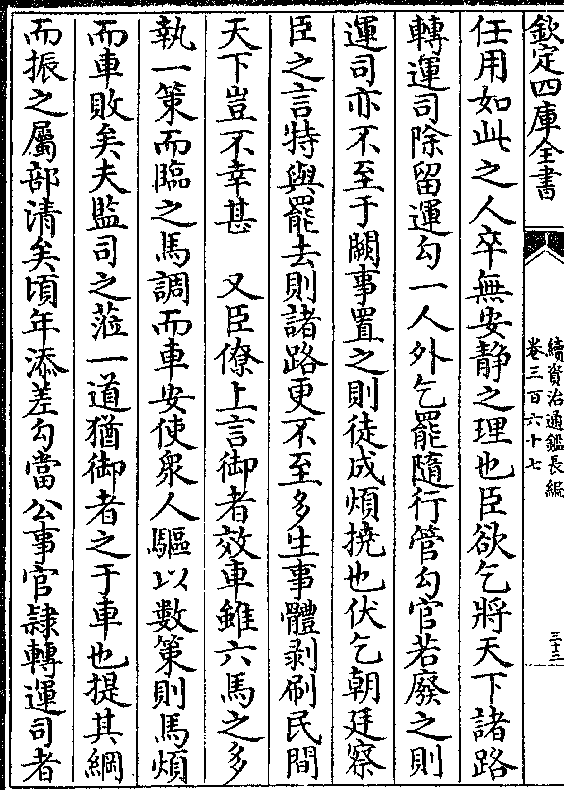 欽定四庫全書
續資治通鑑長編
卷三百六十七
三十三
任用如此之人卒無安静之理也臣欲乞將天下諸路
轉運司除留運勾一人外乞罷隨行管勾官若廢之則
運司亦不至于闕事置之則徒成煩撓也伏乞朝廷察
臣之言特與罷去則諸路更不至多生事體剥刷民間
天下豈不幸甚 又臣僚上言御者效車雖六馬之多
執一策而臨之馬調而車安使衆人驅以數策則馬煩
而車敗矣夫監司之蒞一道猶御者之于車也提其綱
而振之屬部清矣頃年添差勾當公事官隷轉運司者